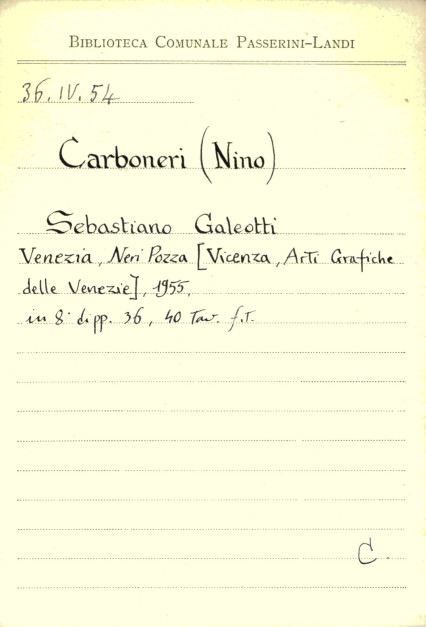 BIBLIOTECA COMUNALE PASSERINI-LANDI
36.IV.54
Carboneri (Nino)
Sebastiano Galeotti
Venezia, Neri Pozza [Vicenza, Arti Grafiche
delle Venezie], 1955.
in 8° di pp. 36, 40 Tav. f.T.
C.